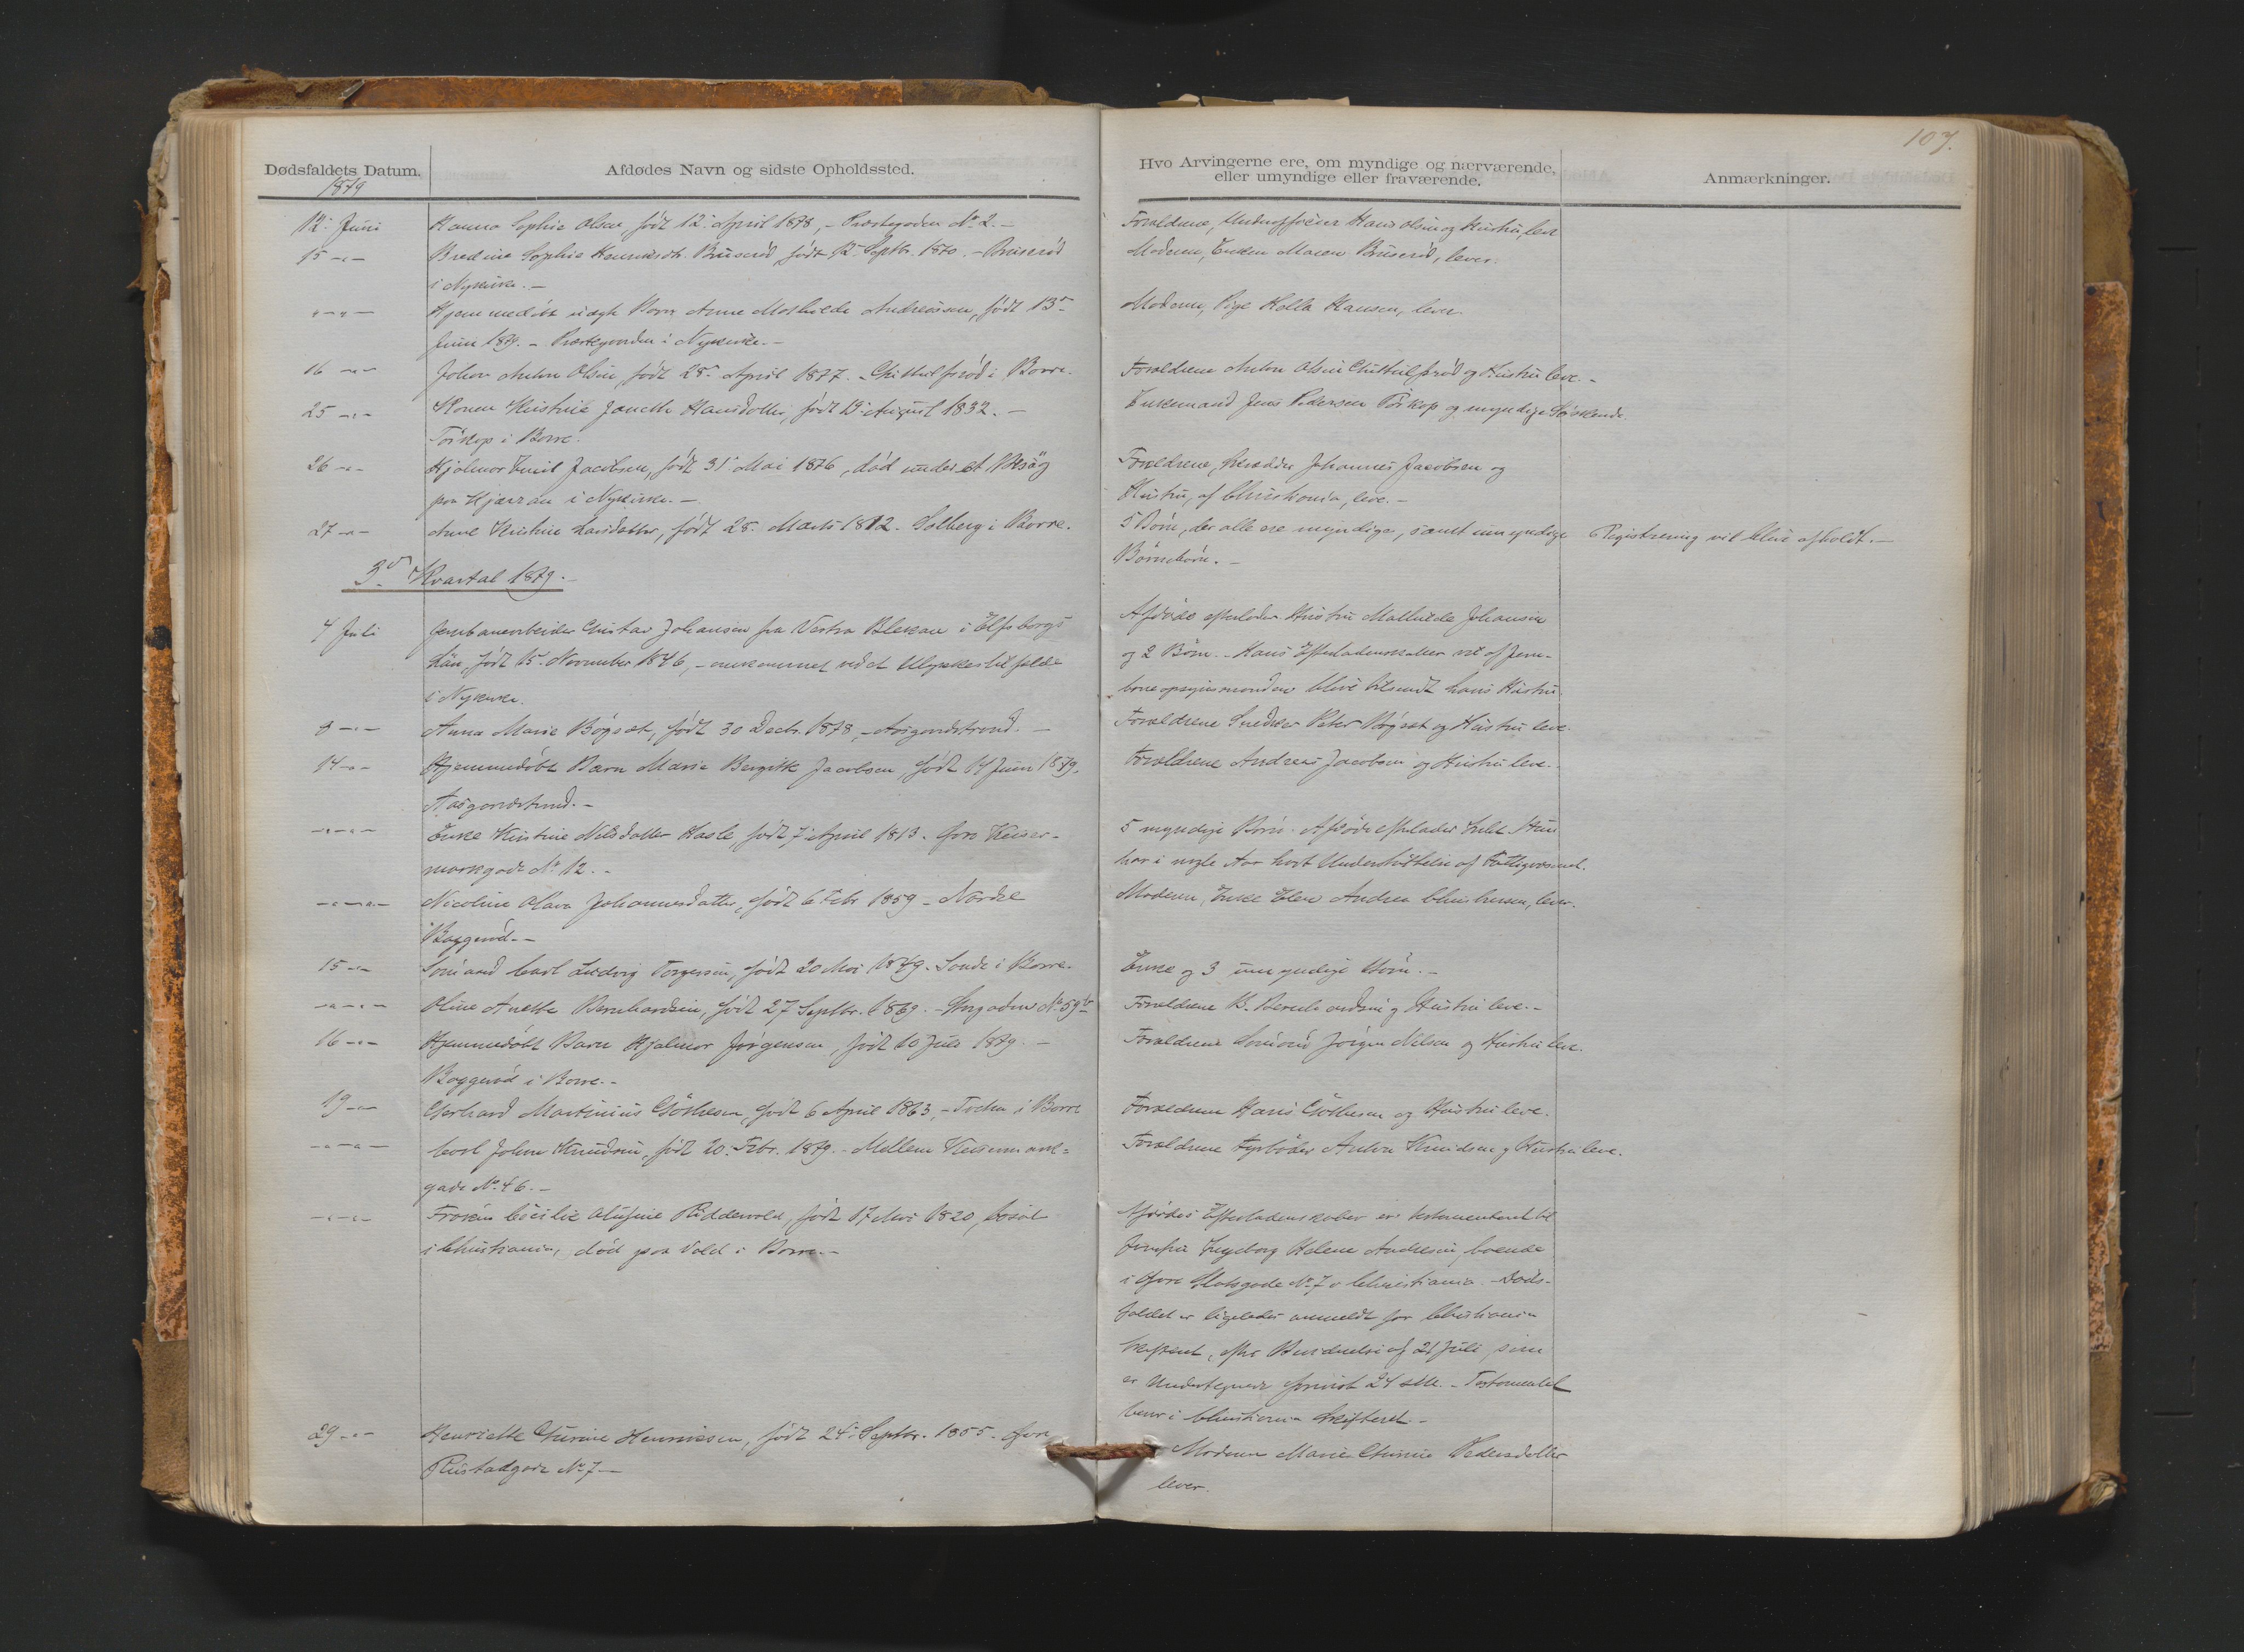 107.
Dødsfaldets Datum.
1879
Afdødes Navn og sidste Opholdssted.
Hvo Arvingerne ere, om myndige og nærværende,
eller umyndige eller fraværende.
Anmærkninger.
12. Juni
Hanna Sophie Olsen, født 12. April 1878, - Præstegaden No 2. -
Forældrene, Underofficier Hans Olsen og Hustru, leve
15 -"-
Bredine Sophie Henriksdtr. Buserød, født 12 Septbr. 1870. - Buserød
i Nykirke. -
Moderen, Enken Maren Buserød, lever.
-"-"-
Hjemmedøbt uægte Barn Anne Mathilde Andreassen, født 13.
Juni 1879. - Præstegaarden i Nykirke. -
Moderen, Pige Helle Hansen, lever.
16 -"-
Johan Anton Olsen, født 28. April 1877. - i Borre.
Forældrene Anton Olsen og Hustru leve. -
25 -"-
Konen Kristine Janette Hansdatter, født 13. August 1832. -
Torkop i Borre.
Enkemand Jens Pedersen Torkop og myndige Søskende.
26 -"-
Hjalmar Emil Jacobsen, født 31. Mai 1876, død under et Besøg
paa Hjærran i Nykirke. -
Forældrene, Johannes Jacobsen og
Hustru, af Christiania, leve. -
27 -"-
Anne Kristine Larsdatter, født 28. Marts 1812. Solberg i Borre.
5 Børn, der alle ere myndige, samt umyndige
Børnebørn. -
Registrering vil blive afholdt. -
3die Kvartal 1879. -
4 Juli
Jernbanearbeider Gustav Johansen fra Vestra Blekan i Elfsborgs
Län, født 15. November 1846, - omkommet ved et Ulykkestilfælde
i Nykirke.
Afdøde efterlader Hustru Mathilde Johansen
og 2 Børn. - Hans Efterladenskaber vil af Jern-
baneopsynsmanden blive tilsendt hans Hustru.
8 -"-
Anna Marie Bøgset, født 30 Decbr. 1878, - Aasgaardstrand. -
Forældrene Snedker Peter Bøgset og Hustru leve.
14 -"-
Hjemmedøbt Barn Marie Bergitte Jacobsen, født 14 Juni 1879.
Aasgaardstrand. -
Forældrene Andreas Jacobsen og Hustru leve.
-"-"-
Enke Kristine Nilsdatter Hasle, født 7. April 1813.
gade No 12. -
5 myndige Børn. Afdøde efterlader Intet. Hun
har i nogle Aar havt Understøttelse af Fattigvæsenet.
-"-"-
Nicoline Olava Johannesdatter, født 6 Febr. 1859 - Nordre
Baggerød. -
Moderen, Enke Elen Andrea Christensen, lever.
15 -"-
Sømand Carl Ludvig Torgersen, født 20 Mai 1849. Sande i Borre.
Enke og 3 umyndige Børn. -
-"-"-
Oline Anette Bernhardsen, født 27 Septbr. 1869. - Storgaden No 59b
Forældrene B. Bernhardsen og Hustru leve. -
16 -"-
Hjemmedøbt Barn Hjalmar Jørgensen, født 10 Juli 1879. -
Baggerød i Borre. -
Forældrene Sømand Jørgen Nilsen og Hustru leve.
19 -"-
Gerhard Martinius Gøthesen, født 6 April 1863, - i Borre
Forældrene Hans Gøthesen og Hustru leve.
-"-"-
Carl Johan Knudsen, født 20. Febr. 1879. - Mellem
gade No 46. -
Forældrene Fyrbøder Anton Knudsen og Hustru leve.
-"-"-
Frøken Cecilie Olufine Riddervold, født 17 Mai 1820, bosat
i Christiania, død paa Vold i Borre. -
Afdødes Efterladenskaber er testamenteret til
Jomfru Ingeborg Helene Andresen, boende
i øvre Slotsgade No 7 i Christiania. - Døds-
faldet er ligeledes anmeldt for Christiania
Skifteret, efter af 21 Juli, som
er Undertegnede 24 - Testamentet
beror i Christiania Skifteret. -
29 -"-
Henriette Gurine Henriksen, født 24. Septbr. 1855. Øvre
Rustadgade No 7 -
Moderen Marie Gurine Pedersdatter
lever.